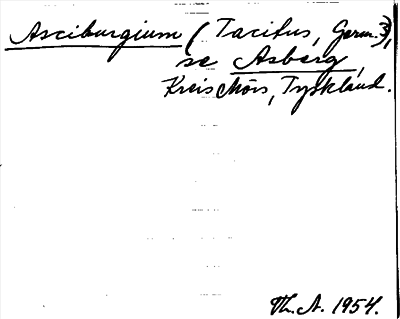 Asciburgium (Tacitus, Germ. 3),
se Asberg,
Kreis Mörs, Tyskland.
Th. A. 1954.